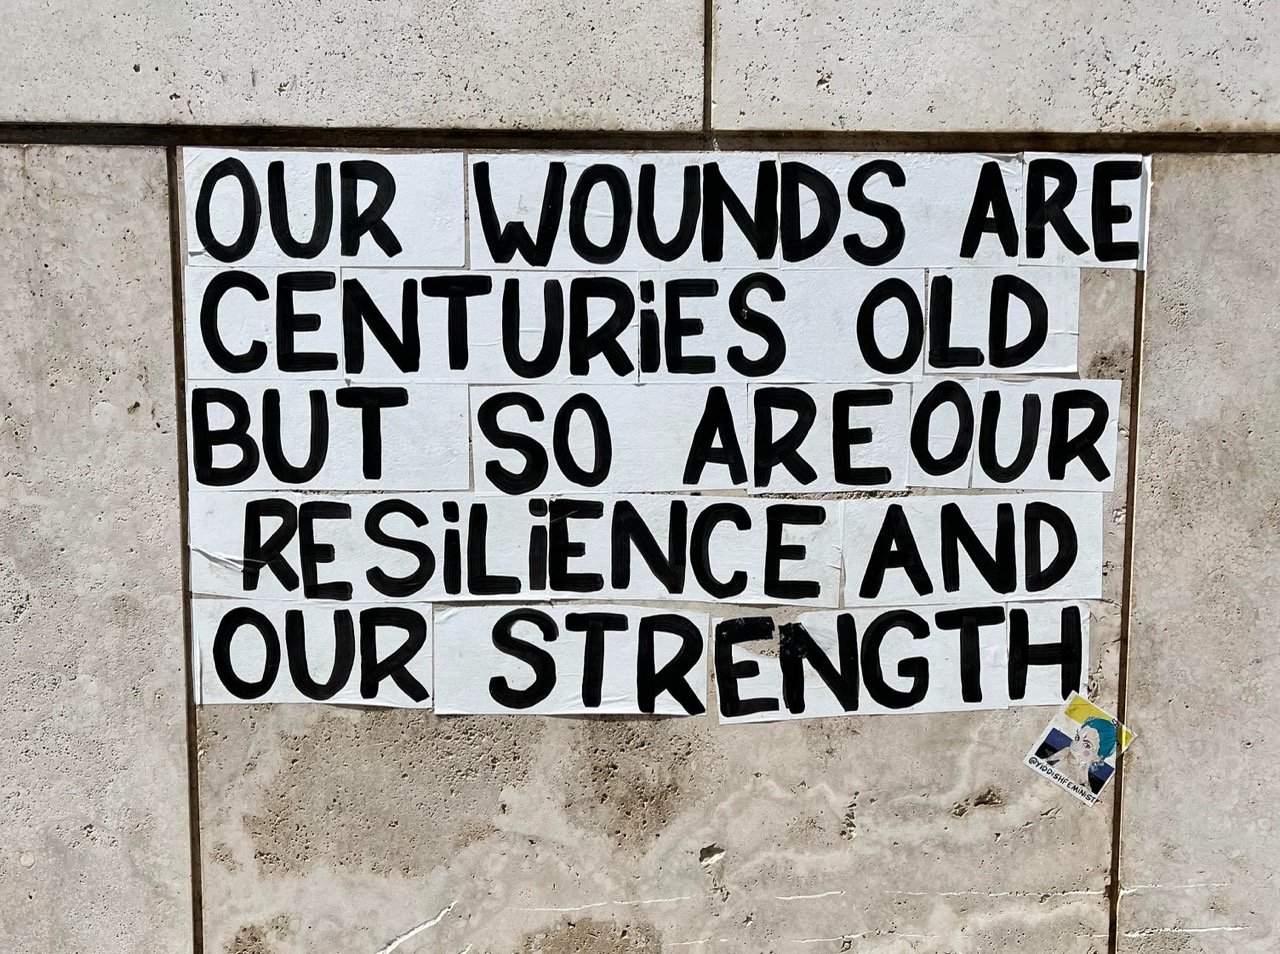 OUR WOUNDS ARE
CENTURiES OLD
BUT SO ARE OUR
RESiLiENCE AND
OUR STRENGTH
@YIDDISHFEMINIST